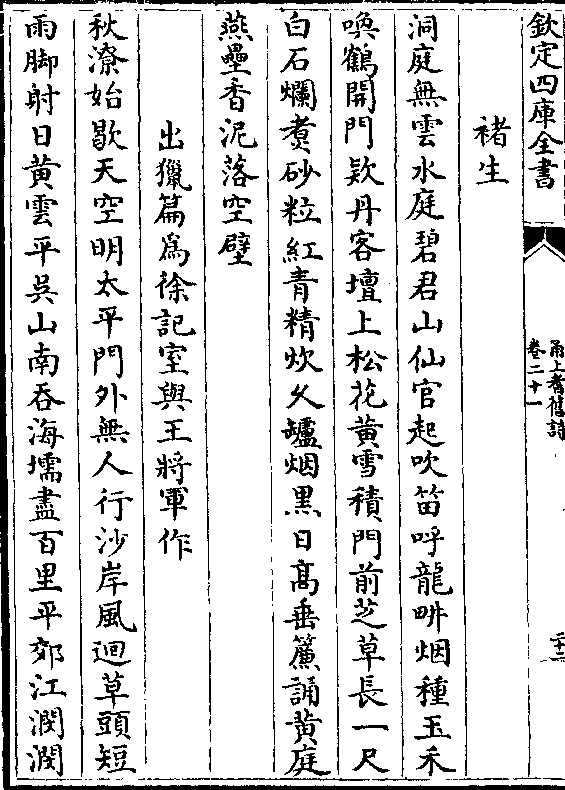 欽定四庫全書
甬上耆舊詩
卷二十一
褚生
洞庭無雲水庭碧君山仙官起吹笛呼龍畊烟種玉禾
喚鶴開門欵丹客壇上松花黄雪積門前芝草長一尺
白石爛煑砂粒紅青精炊久罏烟黑日髙垂簾誦黄庭
燕壘香泥落空壁
出獵篇為徐記室與王將軍作
秋潦始歇天空明太平門外無人行沙岸風迴草頭短
雨脚射日黄雲平吳山南吞海壖盡百里平郊江濶濶